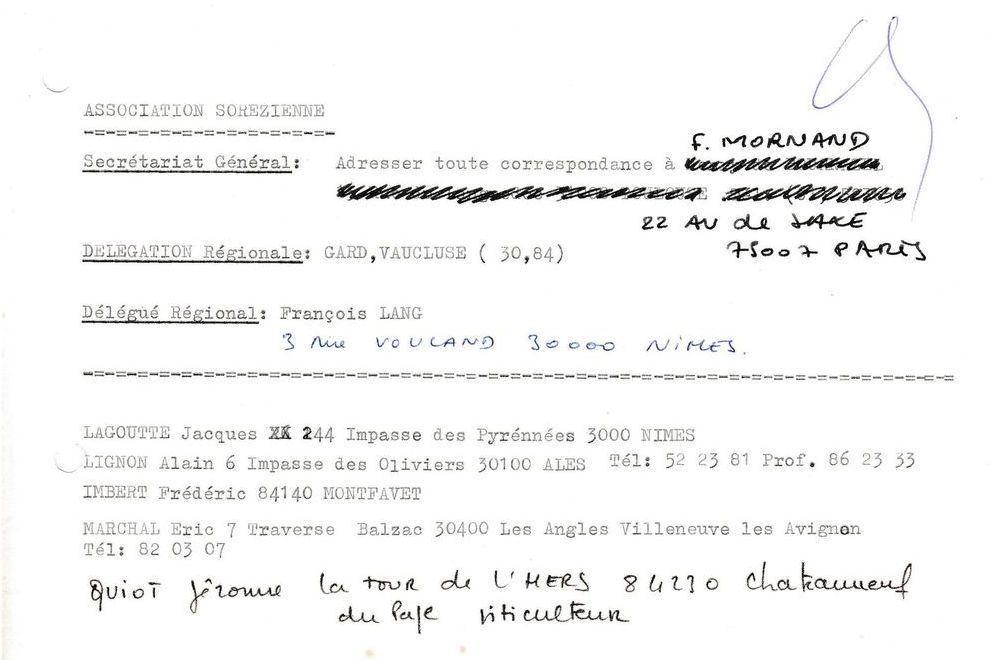 ASSOCIATION SOREZIENNE
-=-=-=-=-=-=-=-=-=-=-=-
F. MORNAND
Secrétariat Général: Adresser toute correspondance à
22 AV de SAXE
75007 PARIS
DELEGATION Régionale: GARD,VAUCLUSE ( 30,84)
Délégué Régional: François LANG
3 rue VOULAND 30000 NIMES.
LAGOUTTE Jacques 244 Impasse des Pyrénnées 3000 NIMES
LIGNON Alain 6 Impasse des Oliviers 30100 ALES Tél: 52 23 81 Prof. 86 23 33
IMBERT Frédéric 84140 MONTFAVET
MARCHAL Eric 7 Traverse Balzac 30400 Les Angles Villeneuve les Avignon
Tél: 82 03 07
QUIOT Jérôme la TOUR de L'HERS 84230 Chateauneuf
du Pape Viticulteur